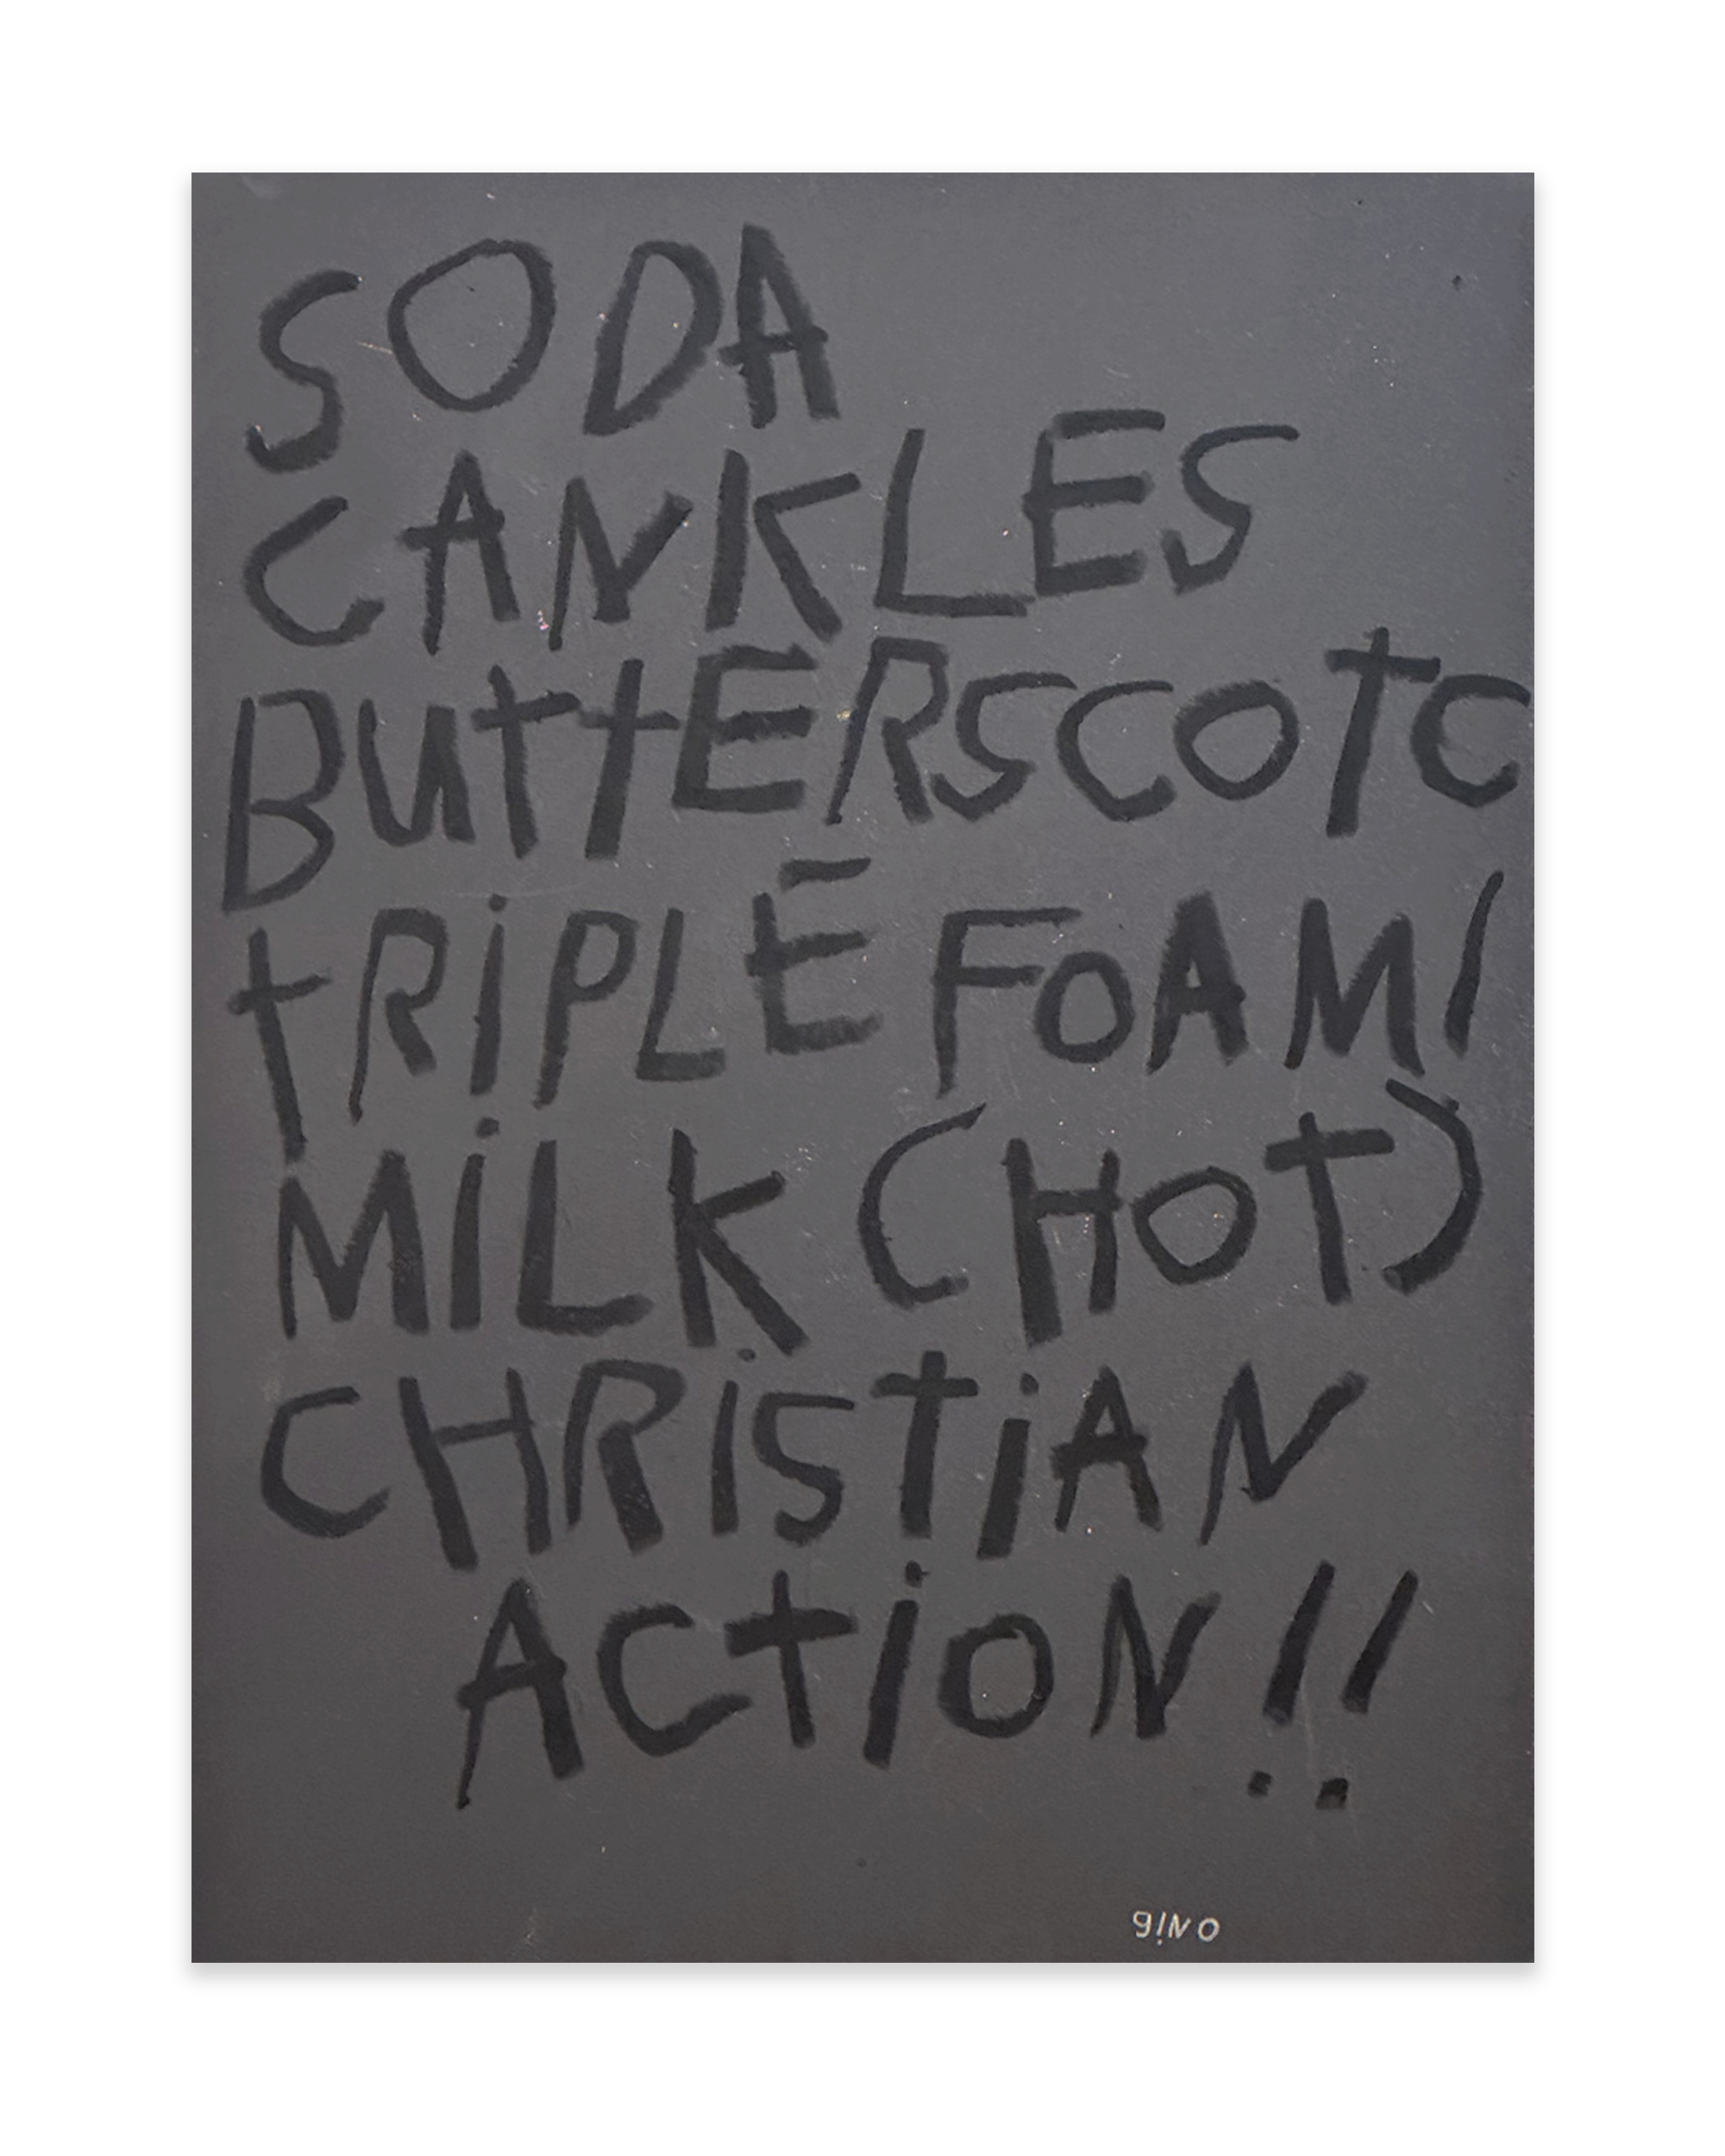 SODA
CANKLES
BUttERSCOtC
tRiPLE FOAM!
MiLK (HOt)
CHRiStiAN
ACtiON!!
giNO